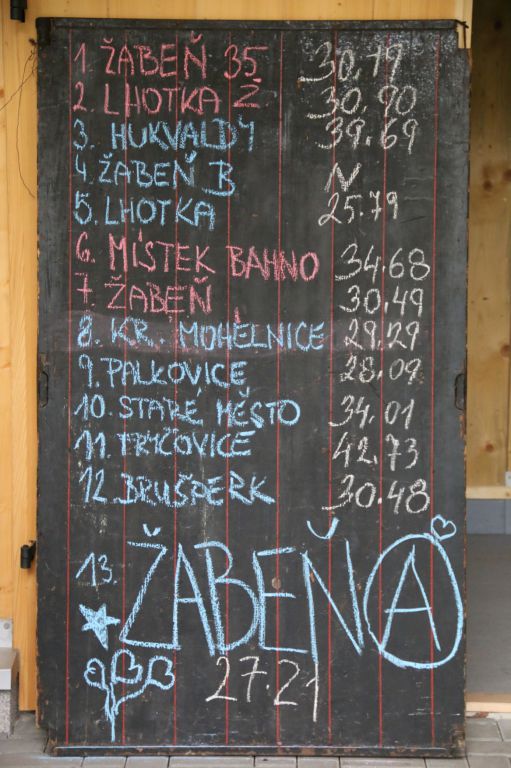 1 ŽABEŇ 35 30.19
2. LHOTKA Ž 30.90
3. HUKVALDY 39.69
4. ŽABEŇ B N
5. LHOTKA 25.79
6. MÍSTEK BAHNO 34.68
7. ŽABEŇ 30.49
8. KR. MOHELNICE 29.29
9. PALKOVICE 28.09
10. STARÉ MĚSTO 34.01
11. TRYČOVICE 42.73
12. BRUŠPERK 30.48
13. ŽABEŇ A
27.21